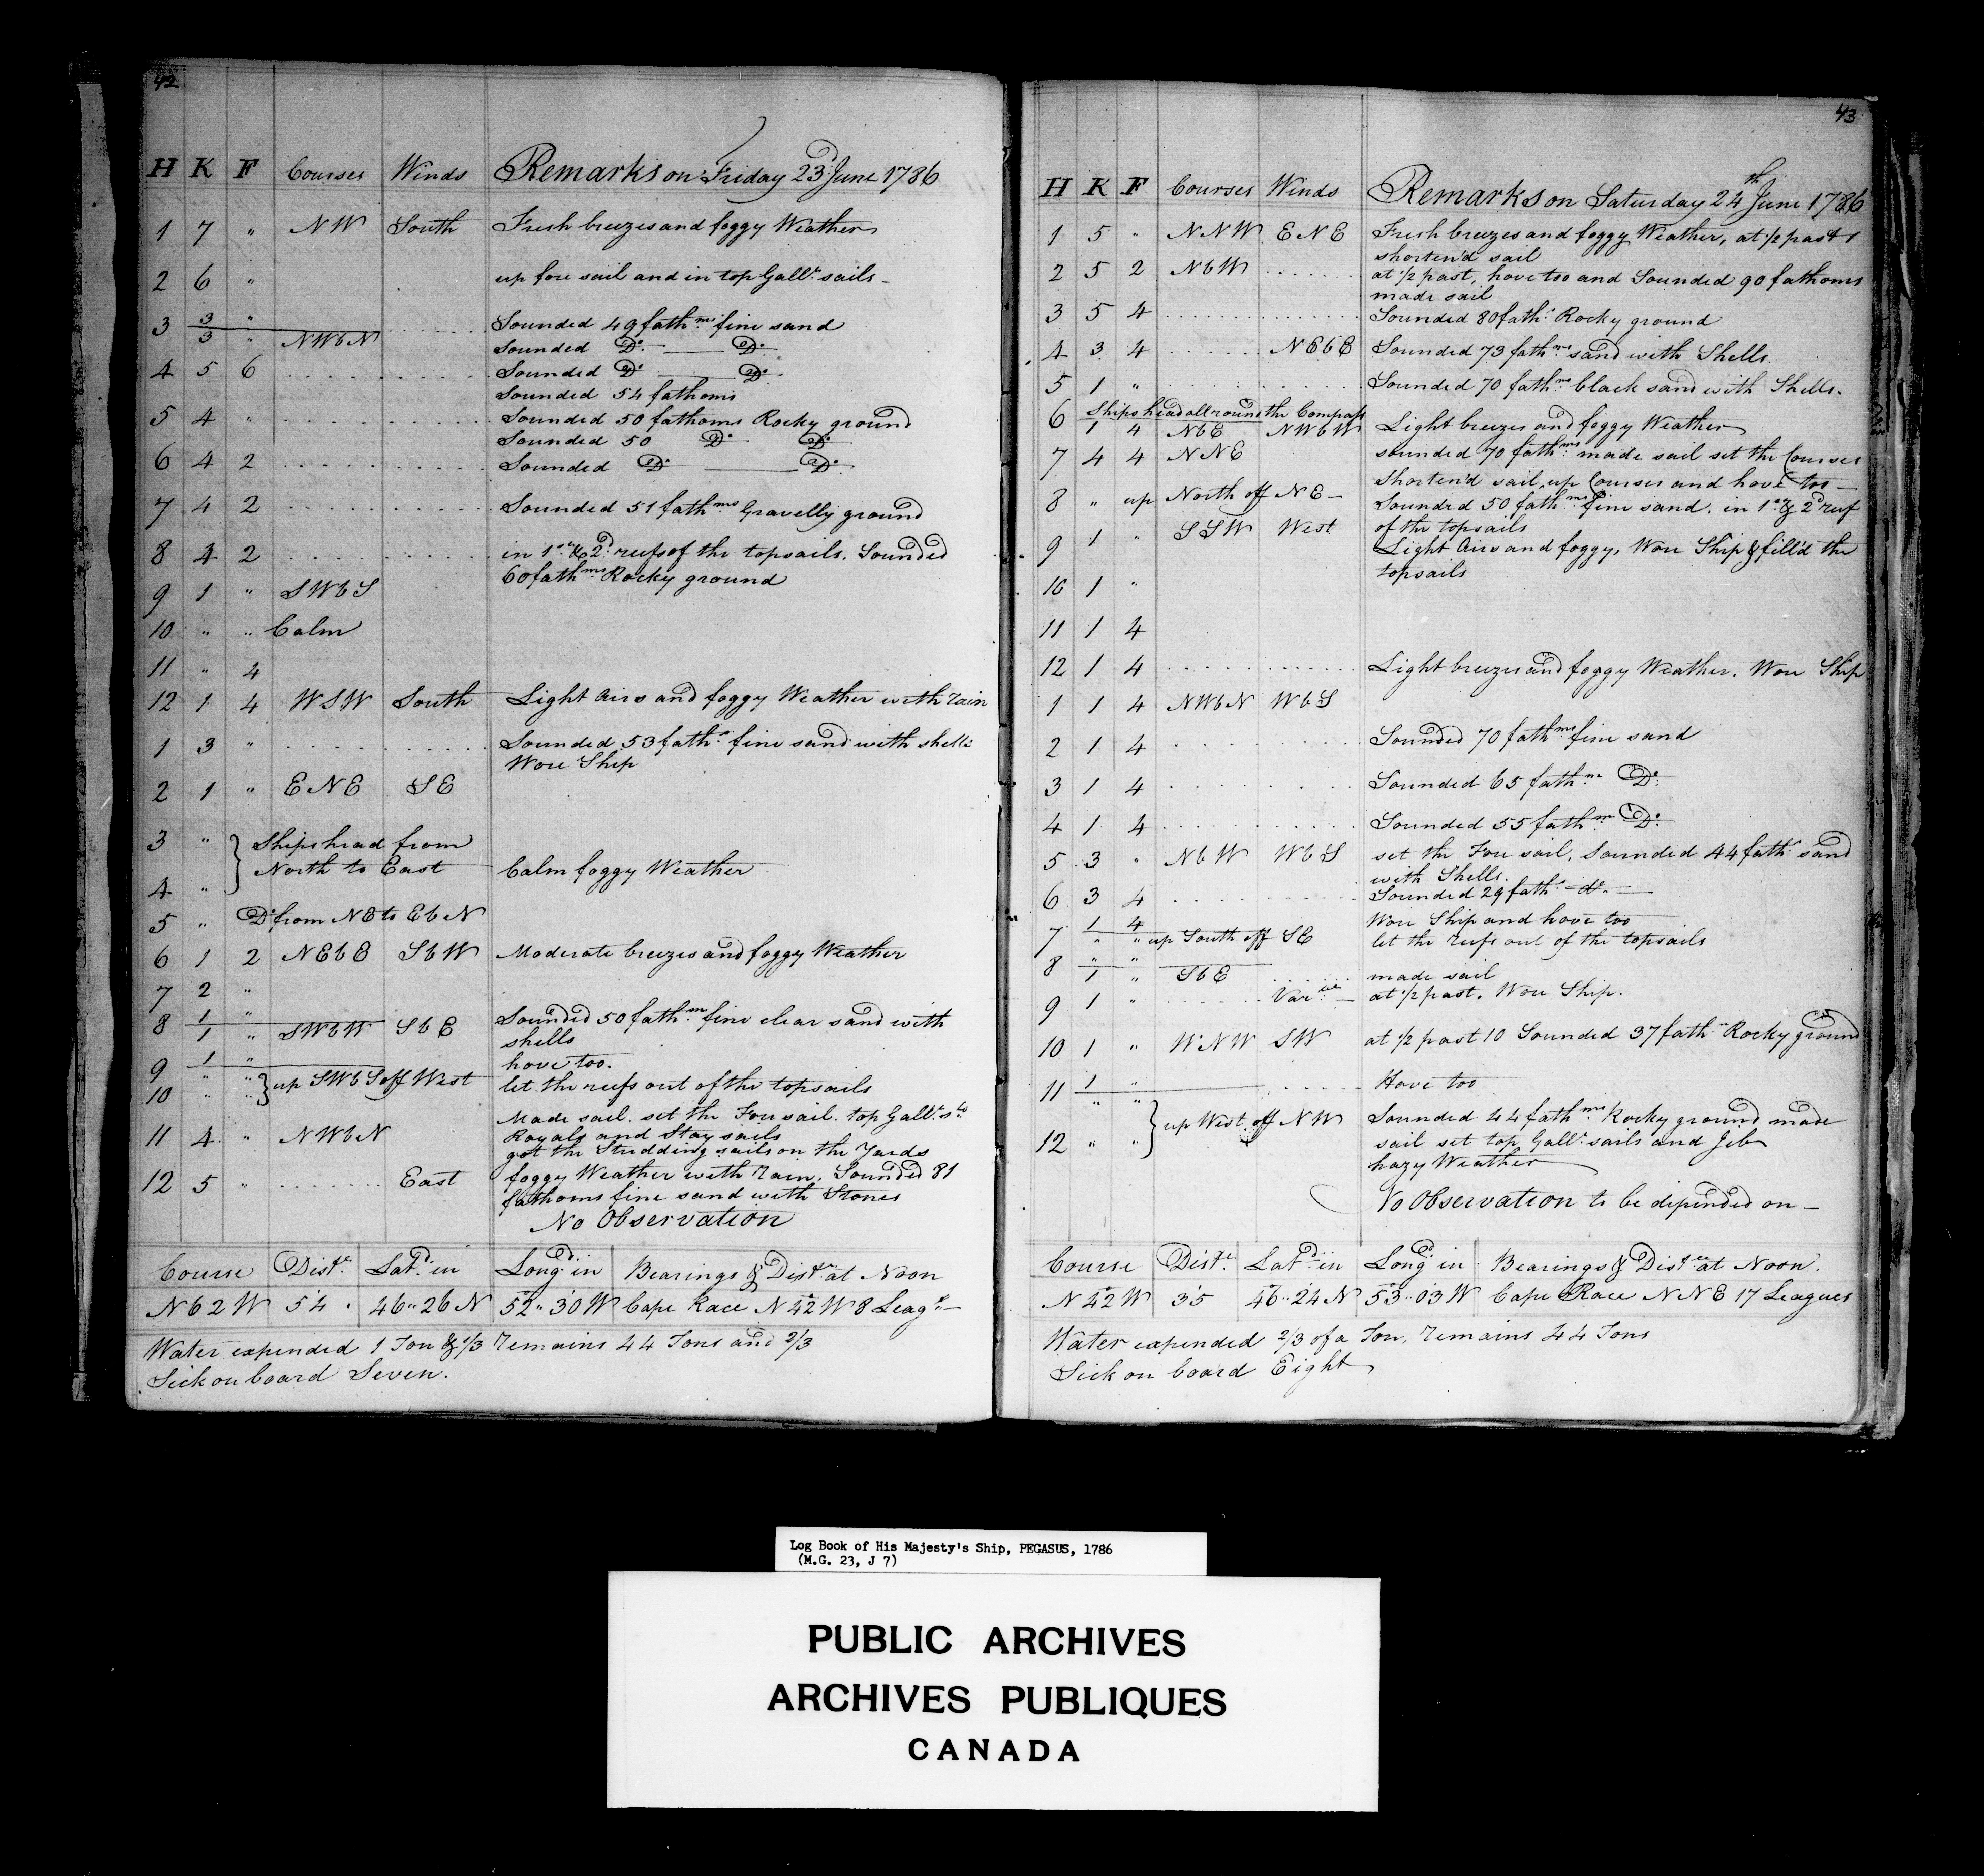 42
H K F Courses Winds Remarks on Friday 23d June 1786
1 7 " NW South Fresh breezes and foggy Weather
2 6 " up fore sail and in top Gallt. sails -
3 3 " Sounded 49 fathms. fine sand
3 " NWbN Sounded Do. Do.
4 5 6 Sounded Do. Do.
Sounded 54 fathoms
5 4 " Sounded 50 fathoms Rocky ground
Sounded 50 Do. Do.
6 4 2 Sounded Do. Do.
7 4 2 Sounded 51 fathms Gravelly ground
8 4 2 in 1st. & 2d. reefs of the topsails. Sounded
60 fathms. Rocky ground
9 1 " SWbS
10 " " Calm
11 " 4
12 1 4 WSW South Light Airs and foggy Weather with rain
1 3 " Sounded 53 faths. fine sand with shells
Wore Ship
2 1 " ENE SE
3 " Ships head from
North to East Calm foggy Weather
4 "
5 " Do. from NE to EbN
6 1 2 NEbE SbW Moderate breezes and foggy Weather
7 2 "
8 1 " Sounded 50 fathm. fine clear sand with
1 " SWbW SbE shells
9 1 " hove too.
" " up SWbS off West let the reefs out of the topsails
10 " "
Made sail. set the Fore sail. top Gallt. sls
11 4 " NWbN Royals and Stay sails
got the Studding sails on the Yards
12 5 " East foggy Weather with Rain. Sounded 81
fathoms fine sand with Stones
No Observation
Course Diste. Latd. in Longd. in Bearings & Distce. at Noon
N 62 W 54 46..26 N 52..30 W Cape Race N 42 W 8 Leags. -
Water expended 1 Ton & 1/3 remains 44 Tons and 2/3
Sick on board Seven.
43
H K F Courses Winds Remarks on Saturday 24th June 1786
1 5 " NNW ENE Fresh breezes and foggy Weather, at 1/2 past 1
shorten'd sail
2 5 2 NbW at 1/2 past, hove too and Sounded 90 fathoms
made sail
3 5 4 Sounded 80 fath. Rocky ground
4 3 4 NEbE Sounded 73 fathms sand with Shells
5 1 " Sounded 70 fathms. black sand with Shells.
6 Ships head all round the Compass
1 4 NbE NWbW Light breezes and foggy Weather
7 4 4 NNE sounded 70 fathms. made sail set the Courses
Shorten'd sail, up Courses and hove too -
8 " up North off NE - Sounded 50 fathms. fine sand. in 1st. & 2d reef
SSW West of the topsails
9 1 " Light Airs and foggy, Wore Ship & fill'd the
topsails
10 1 "
11 1 4
12 1 4 Light breezes and foggy Weather. Wore Ship
1 1 4 NWbN WbS
2 1 4 Sounded 70 fathms. fine sand
3 1 4 Sounded 65 fathm. Do.
4 1 4 Sounded 55 fathm. Do.
5 3 " NbW WbS set the Fore sail, Sounded 44 fath. sand
with Shells.
6 3 4 Sounded 29 fath. do.
7 1 4 Wore Ship and hove too
" " up South off SE let the reefs out of the topsails
8 " "
1 " SbE made sail
9 1 " Varble. - at 1/2 past. Wore Ship.
10 1 " WNW SW at 1/2 past 10 Sounded 37 fath. Rocky ground
11 1 " Hove too
" " up West off NW Sounded 44 fathms. Rocky ground made
12 " " sail set top Gallt. sails and Jib
hazy Weather
No Observation to be depended on -
Course Diste. Latd. in Longd. in Bearings & Distce at Noon.
N 42 W 35 46..24 N 53..03 W Cape Race NNE 17 Leagues
Water expended 2/3 of a Ton, remains 44 Tons
Sick on board Eight
Log Book of His Majesty's Ship, PEGASUS, 1786
(M.G. 23, J 7)
PUBLIC ARCHIVES
ARCHIVES PUBLIQUES
CANADA